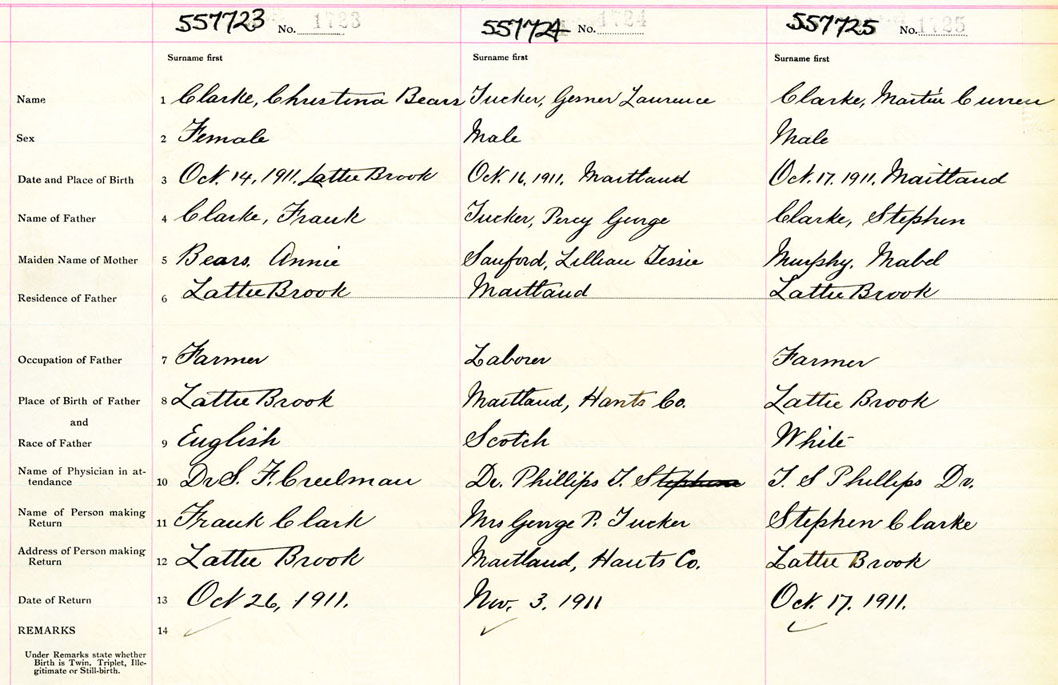 557723 No. 1723 557724 No. 1724 557725 No. 1725
Surname first Surname first Surname first
Name 1 Clarke, Christina Bears Tucker, Gesner Laurence Clarke, Martin Curren
Sex 2 Female Male Male
Date and Place of Birth 3 Oct. 14, 1911, Lattie Brook Oct. 16, 1911, Maitland Oct. 17, 1911, Maitland
Name of Father 4 Clarke, Frank Tucker, Percy George Clarke, Stephen
Maiden Name of Mother 5 Bears, Annie Sanford, Lillian Tessie Murphy, Mabel
Residence of Father 6 Lattie Brook Maitland Lattie Brook
Occupation of Father 7 Farmer Laborer Farmer
Place of Birth of Father 8 Lattie Brook Maitland, Hants Co. Lattie Brook
and
Race of Father 9 English Scotch White
Name of Physician in at-
tendance 10 Dr S. F. Creelman Dr. Phillips T. S T. S Phillips Dr.
Name of Person making
Return 11 Frank Clark Mrs George P. Tucker Stephen Clarke
Address of Person making
Return 12 Lattie Brook Maitland, Hants Co. Lattie Brook
Date of Return 13 Oct 26, 1911. Nov. 3, 1911 Oct. 17, 1911.
REMARKS 14
Under Remarks state whether
Birth is Twin, Triplet, Ille-
gitimate or Still-birth.